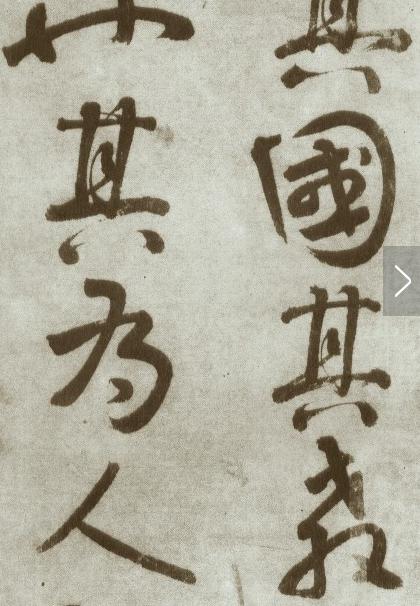 其國其教
其為人